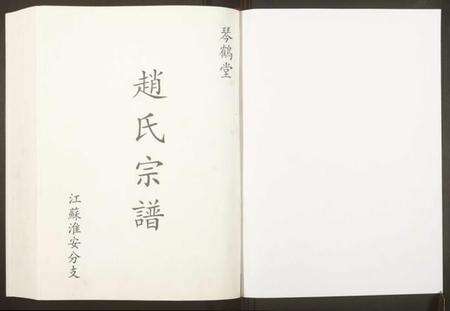 琴鶴堂
趙氏宗譜
江蘇淮安分支